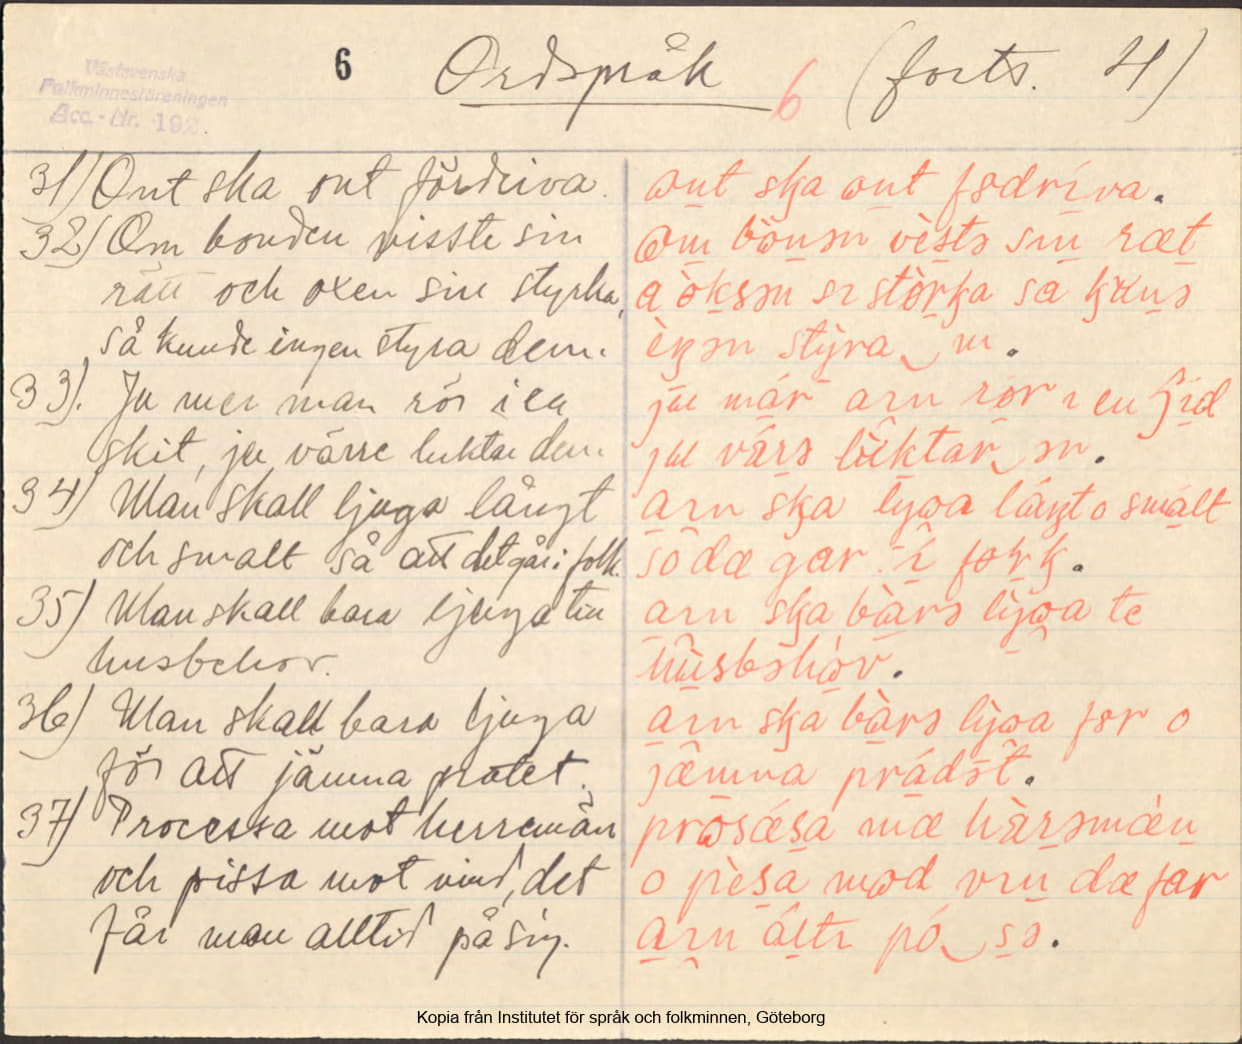 Västsvenska
Folkminnesföreningen
Acc.-Nr. 192.
6 Ordspråk 6 (forts. 4)
31) Ont ska ont fördriva.
32) Om bonden visste sin
rätt och oxen sin styrka,
så kunde ingen styra dem.
33). Ju mer man rör i en
skit, ju värre luktar den.
34) Man skall ljuga långt
och smalt så att det går i folk.
35) Man skall bara ljuga till
husbehov.
36) Man skall bara ljuga
för att jämna pratet.
37) Processa mot herremän
och pissa mot vind, det
får man alltid på sig.
ont ska ont fədriva.
om bònən vèstə sın ræt
a òksən sı stòrka sa kunə
èŋən stỳra ‿ m.
ju már arn rör ı en
ju värs lùktar ‿ ən.
arn ska lyga láŋt o smalt
so dæ gar í folk.
arn ska bàrə lyga te
hùsbəhòv.
arn ska bàrə lyga før o
jæ̀mna prádət.
prosǽsa mæ hærəmæn
o pèsa mod vın dæ far
arn áltı pó ‿ sə.
Kopia från Institutet för språk och folkminnen, Göteborg